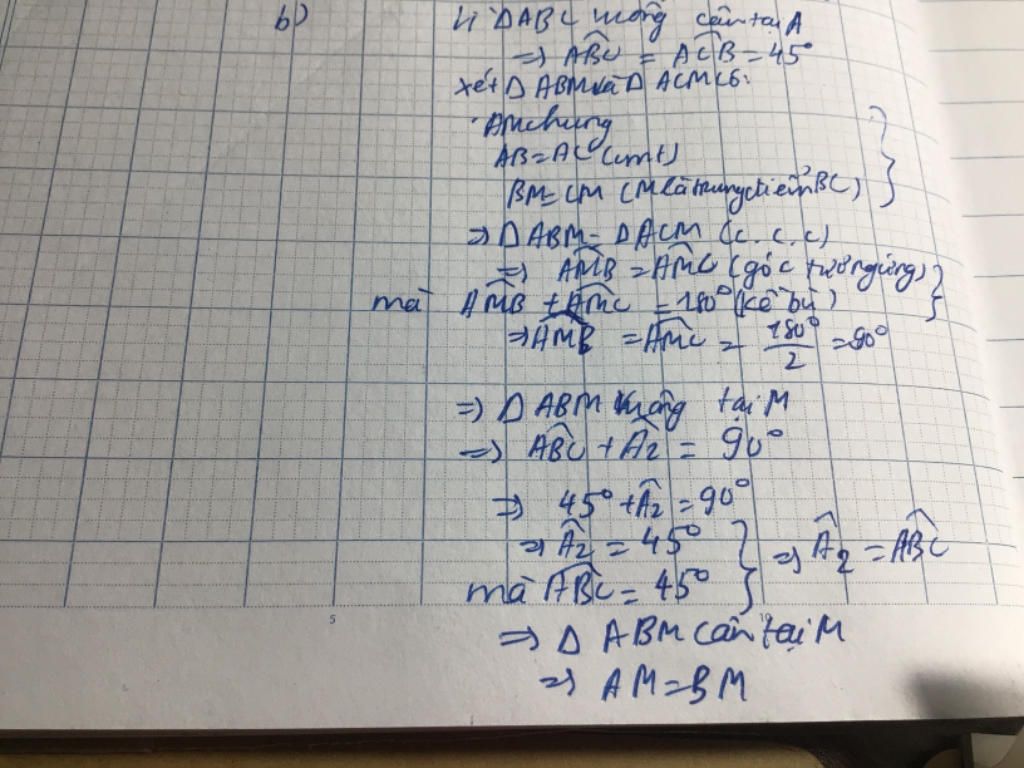 b) Vì ΔABC vuông cân tại A
=> ABĈ = AĈB = 45°
xét Δ ABM và Δ ACM có:
AM chung
AB = AC (cmt)
BM = CM (M là trung điểm BC)
=> Δ ABM = Δ ACM (c.c.c)
=> AM̂B = AM̂C (góc tương ứng)
mà AM̂B + AM̂C = 180° (kề bù)
=> AM̂B = AM̂C = 180°/2 = 90°
=> Δ ABM vuông tại M
=> AB̂C + Â2 = 90°
=> 45° + Â2 = 90°
=> Â2 = 45°
mà AB̂C = 45° => Â2 = AB̂C
5 10
=> Δ ABM cân tại M
=> AM = BM